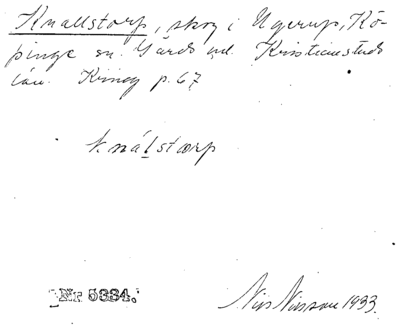 Knallstorp, skog i Ugerup, Kö-
pinge sn Gärds hd. Kristianstads
län. Kring p. 67
knálstorp
Nr 5334.
Nils Nilsson 1933.